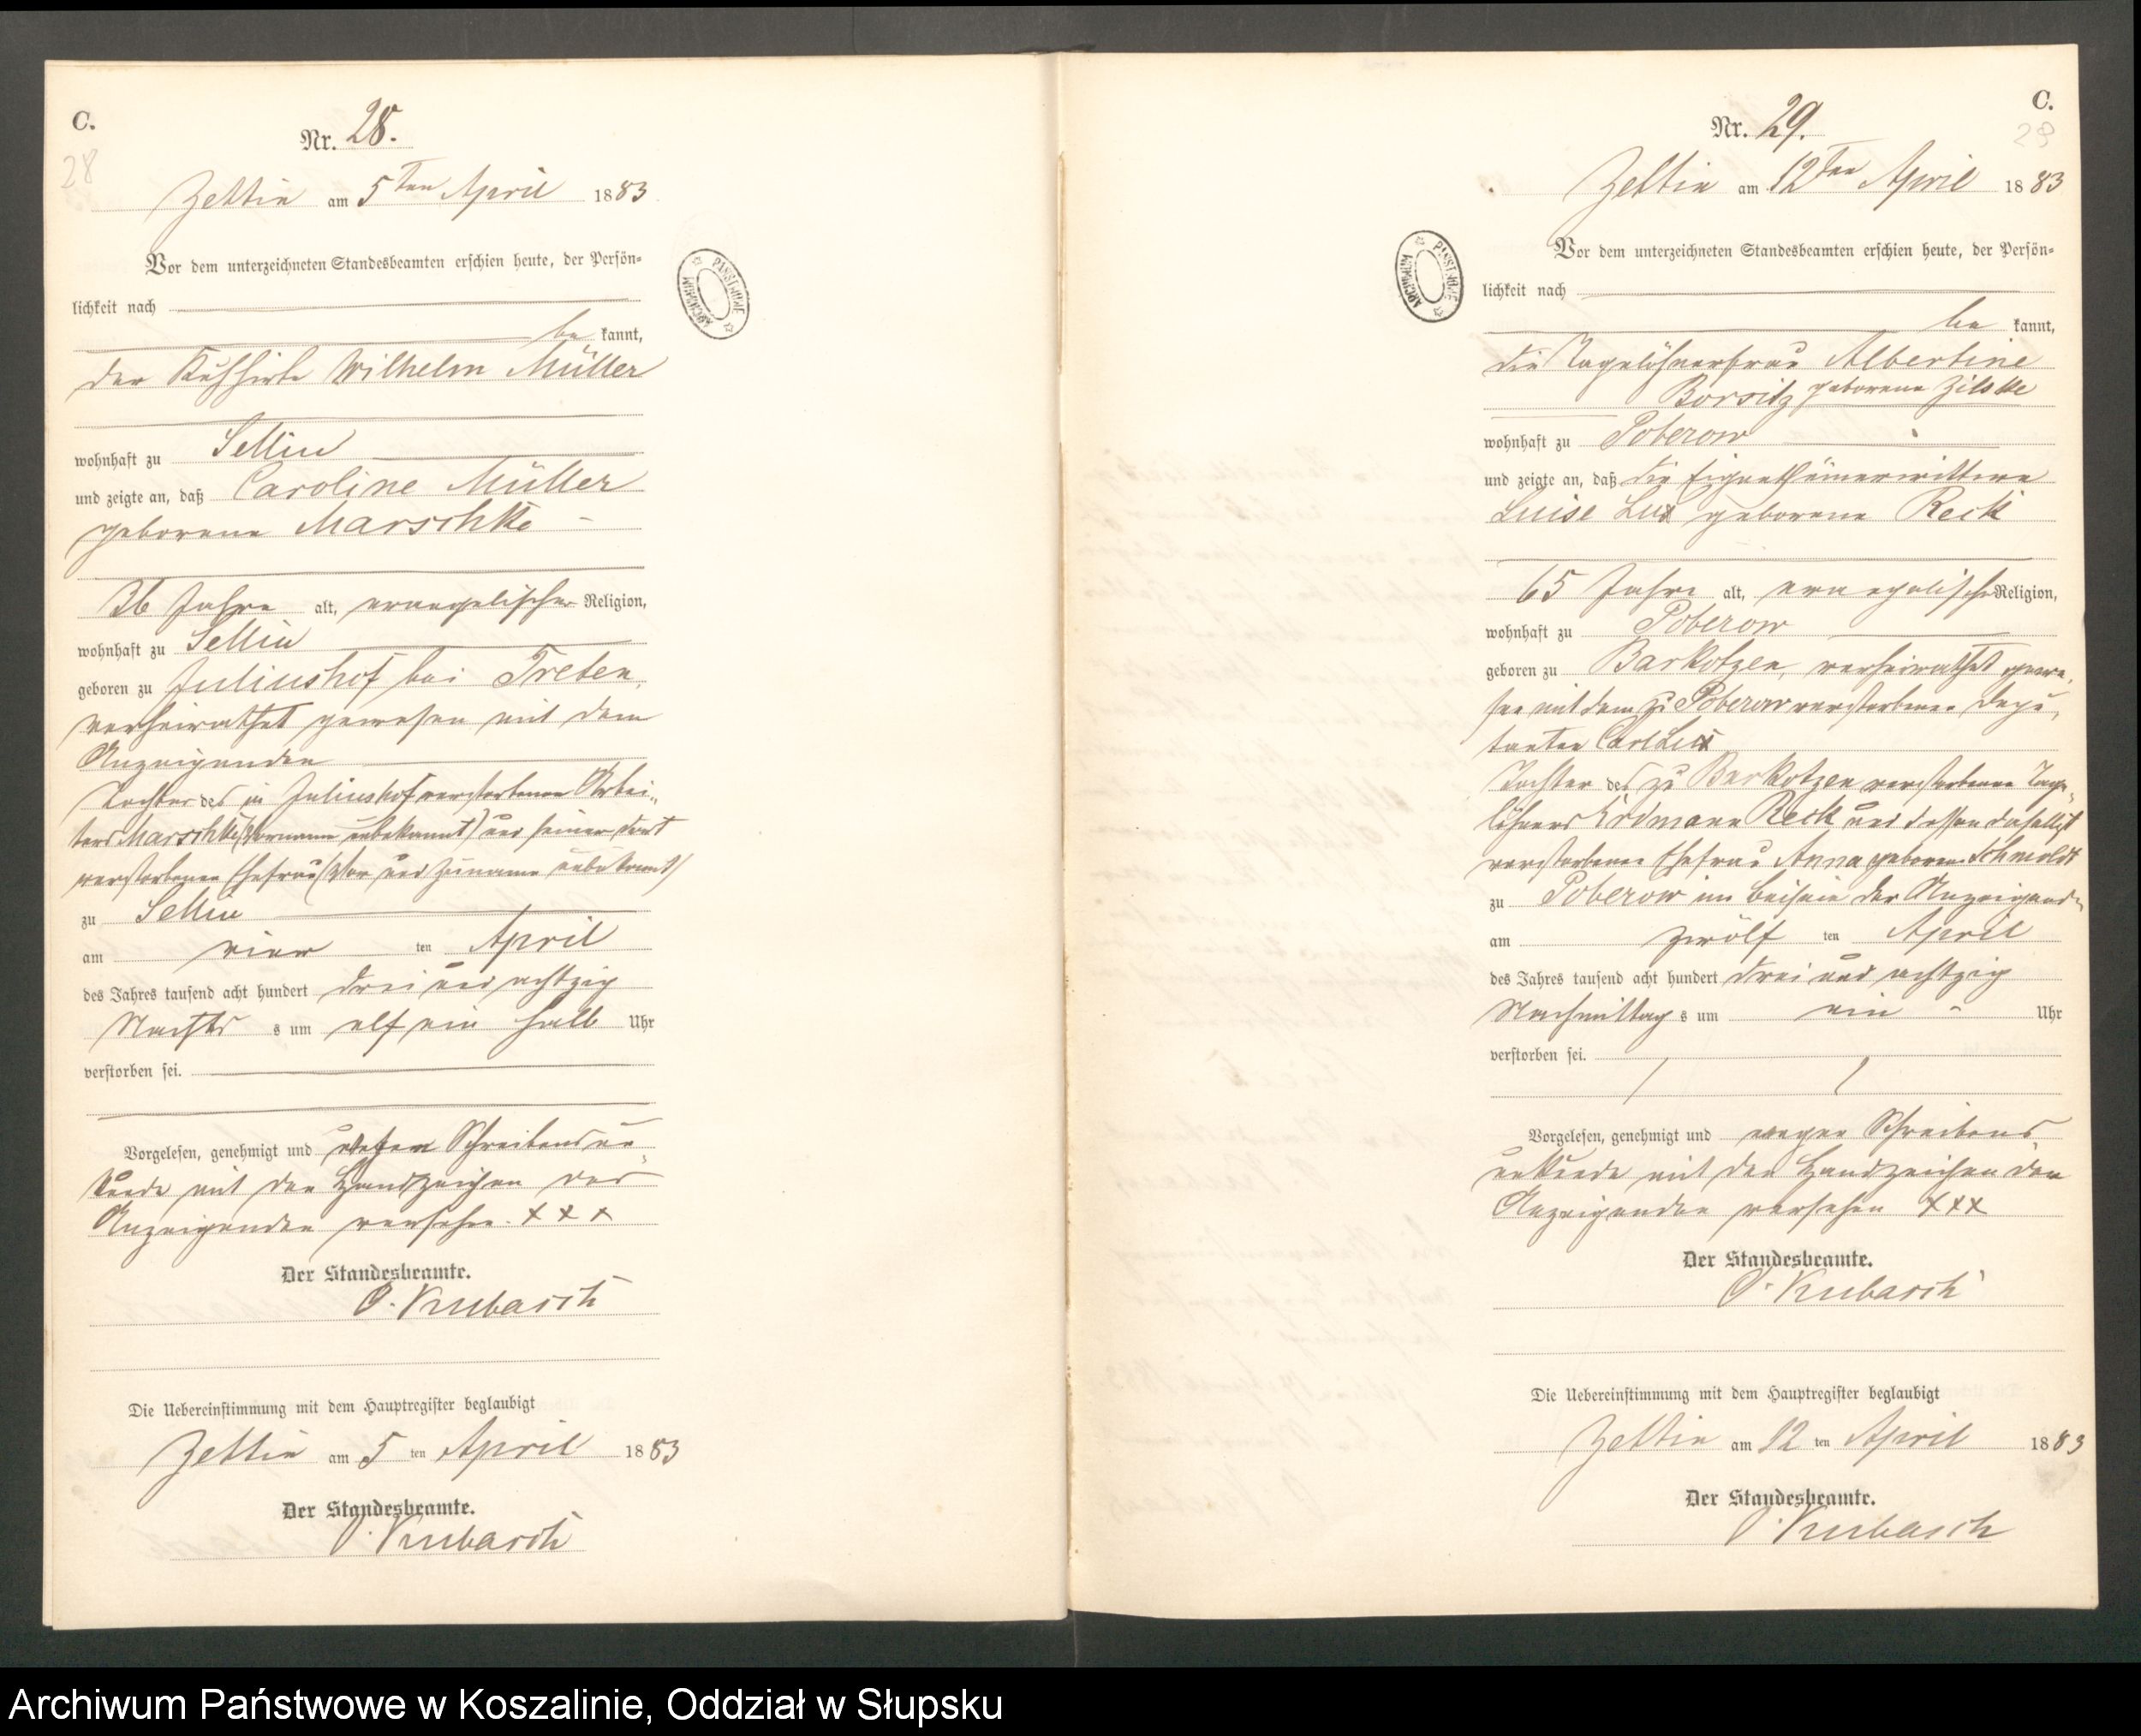 C.
28
Nr. 28.
Zettin am 5ten April 1883
Vor dem unterzeichneten Standesbeamten erschien heute, der Persön-
lichkeit nach
be kannt,
der Kuhhirte Wilhelm Müller
wohnhaft zu Sellin
und zeigte an, daß Caroline Müller
geborene Marschke
36 Jahre alt, evangelischer Religion,
wohnhaft zu Sellin
geboren zu Juliushof bei Treten,
verheirathet gewesen mit dem
Anzeigenden
Tochter des in Juliushof verstorbenen Arbei-
ters Marschke (Vorname unbekannt) und seiner dort
verstorbenen Ehefrau (Vor und Zuname unbekannt)
zu Sellin
am vier ten April
des Jahres tausend acht hundert drei und achtzig
Nachts s um elf ein halb Uhr
verstorben sei.
Vorgelesen, genehmigt und wegen Schreibensun-
kunde mit den Handzeichen des
Anzeigenden versehen. + + +
Der Standesbeamte.
O. Kubasch
Die Uebereinstimmung mit dem Hauptregister beglaubigt
Zettin am 5 ten April 1883
Der Standesbeamte.
O. Kubasch
ARCHIWUM PAŃSTWOWE
C.
29
Nr. 29.
Zettin am 12ten April 1883
Vor dem unterzeichneten Standesbeamten erschien heute, der Persön-
lichkeit nach
be kannt,
die Tagelöhnerfrau Albertine
Borsitz geborene Zilske
wohnhaft zu Poberow
und zeigte an, daß die Eigenthümerwittwe
Luise Lux geborene Reck
65 Jahre alt, evangelischer Religion,
wohnhaft zu Poberow
geboren zu Barkotzen, verheirathet gewe-
sen mit dem zu Poberow verstorbenen Depu-
tanten Carl Lux
Tochter des zu Barkotzen verstorbenen Tage-
löhners Erdmann Reck und dessen daselbst
verstorbenen Ehefrau Anna geborene Schmoldt
zu Poberow im Beisein der Anzeigenden
am zwölf ten April
des Jahres tausend acht hundert drei und achtzig
Nachmittag s um ein Uhr
verstorben sei.
Vorgelesen, genehmigt und wegen Schreibens
unkunde mit den Handzeichen der
Anzeigenden versehen +++
Der Standesbeamte.
O. Kubasch
Die Uebereinstimmung mit dem Hauptregister beglaubigt
Zettin am 12 ten April 1883
Der Standesbeamte.
O. Kubasch
ARCHIWUM PAŃSTWOWE
Archiwum Państwowe w Koszalinie, Oddział w Słupsku